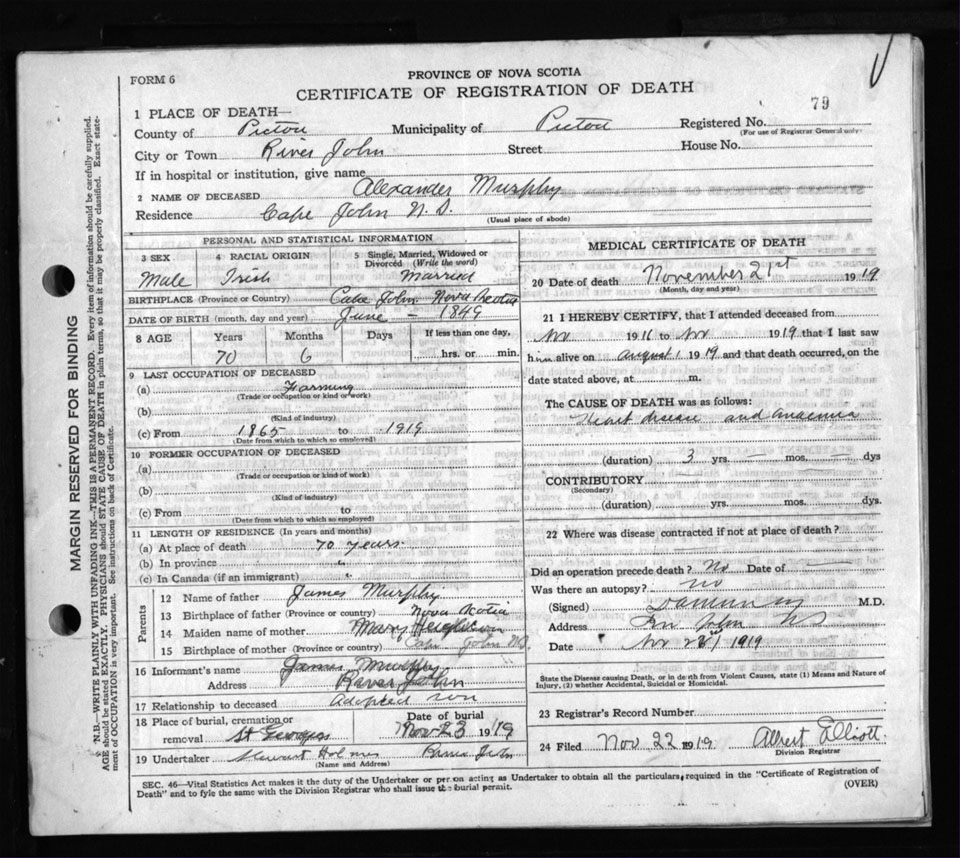 FORM 6
PROVINCE OF NOVA SCOTIA
CERTIFICATE OF REGISTRATION OF DEATH
79
1 PLACE OF DEATH—
County of Pictou Municipality of Pictou Registered No.
(For use of Registrar General only)
City or Town River John Street House No.
If in hospital or institution, give name
2 NAME OF DECEASED Alexander Murphy
Residence Cape John N.S.
(Usual place of abode)
PERSONAL AND STATISTICAL INFORMATION
3 SEX 4 RACIAL ORIGIN 5 Single, Married, Widowed or Divorced (Write the word)
Male Irish Married
BIRTHPLACE (Province or Country) Cape John Nova Scotia
DATE OF BIRTH (month, day and year) June — 1849
8 AGE Years Months Days If less than one day,
70 6 hrs. or min.
9 LAST OCCUPATION OF DECEASED
(a) Farming
(Trade or occupation or kind of work)
(b)
(Kind of industry)
(c) From 1865 to 1919
(Date from which to which so employed)
10 FORMER OCCUPATION OF DECEASED
(a)
(Trade or occupation or kind of work)
(b)
(Kind of industry)
(c) From to
(Date from which to which so employed)
11 LENGTH OF RESIDENCE (In years and months)
(a) At place of death 70 years
(b) In province "
(c) In Canada (if an immigrant) "
Parents
12 Name of father James Murphy
13 Birthplace of father (Province or country) Nova Scotia
14 Maiden name of mother Mary
15 Birthplace of mother (Province or country) Cape John NS.
16 Informant's name James Murphy
Address River John
17 Relationship to deceased Adopted son
18 Place of burial, cremation or removal St Georges Date of burial Nov 23 1919
19 Undertaker Holmes River John
(Name and Address)
MEDICAL CERTIFICATE OF DEATH
20 Date of death November 21st 1919
(Month, day and year)
21 I HEREBY CERTIFY, that I attended deceased from
Nov 1916 to Nov 1919 that I last saw
him alive on August 1 1919 and that death occurred, on the
date stated above, at m.
The CAUSE OF DEATH was as follows:
Heart disease and anaemia
(duration) 3 yrs. — mos. — dys
CONTRIBUTORY
(Secondary)
(duration) yrs. mos. dys.
22 Where was disease contracted if not at place of death?
Did an operation precede death? No Date of —
Was there an autopsy? No
(Signed) M.D.
Address John NS
Date Nov 1919
State the Disease causing Death, or in death from Violent Causes, state (1) Means and Nature of
Injury, (2) whether Accidental, Suicidal or Homicidal.
23 Registrar's Record Number
24 Filed Nov 22 1919 Albert Elliott
Division Registrar
SEC. 46—Vital Statistics Act makes it the duty of the Undertaker or person acting as Undertaker to obtain all the particulars required in the "Certificate of Registration of
Death" and to fyle the same with the Division Registrar who shall issue the burial permit.
(OVER)
MARGIN RESERVED FOR BINDING
N.B.—WRITE PLAINLY WITH UNFADING INK—THIS IS A PERMANENT RECORD. Every item of information should be carefully supplied.
AGE should be stated EXACTLY. PHYSICIANS should STATE CAUSE OF DEATH in plain terms, so that it may be properly classified. Exact state-
ment of OCCUPATION is very important. See instructions on back of Certificate.